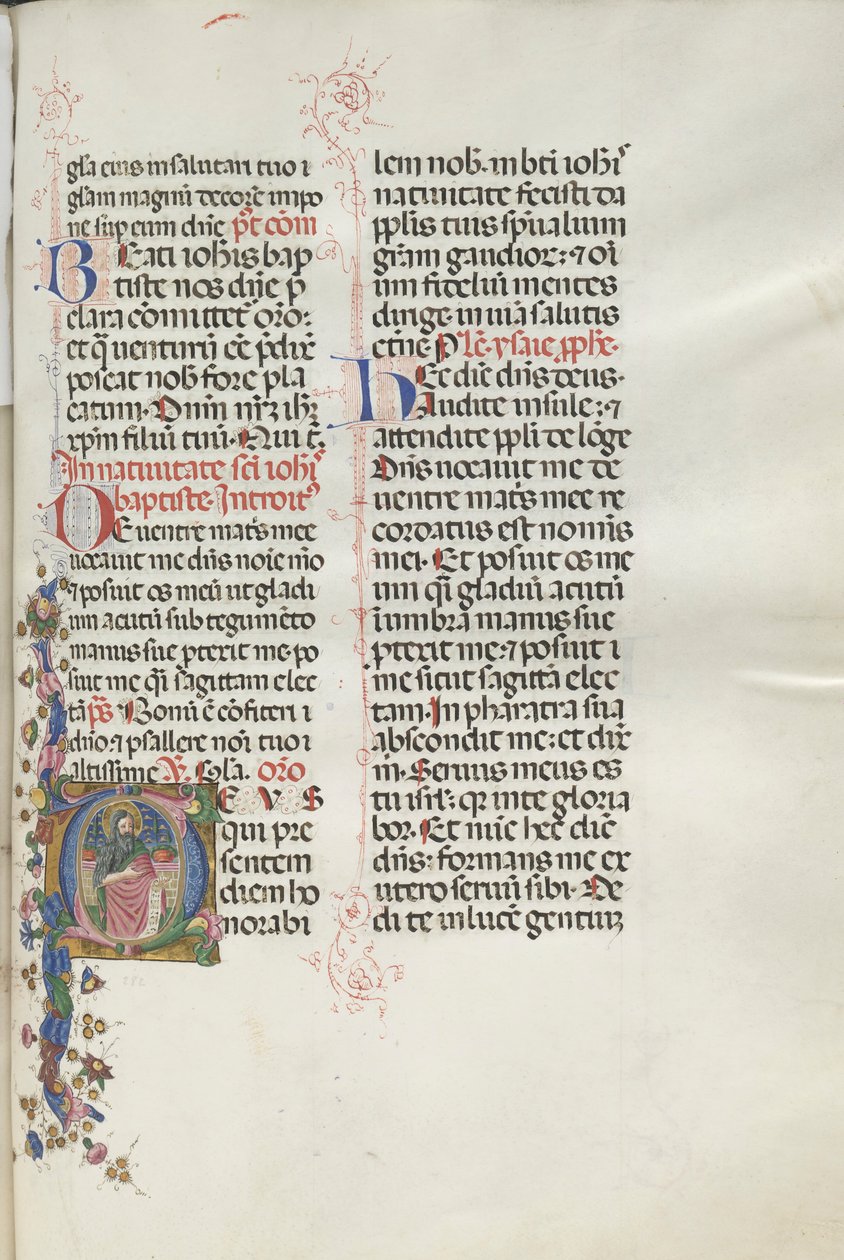 gl̄a eius in salutari tuo ⁊
gl̄am magnū decorē impo
ne sup eum dn̄e p̄t cōm
BEati ioh̄is bap
tiste nos dn̄e p̄
clara cōmittet̄ or̄o:
et q̄ uenturū ēe p̄dix̄
poscat nob̄ fore pla
catum. Dnm nr̄z ih̄z
xp̄m filiū tuū. Qui t̄.
In natiuitate sc̄i ioh̄is
baptiste. Introitꝰ
DE uentre mat̄s mee
uocauit me dn̄s noīe m̄o
⁊ posuit os meū ut gladi
um acutū sub tegumēto
manus sue p̄texit me. po
suit me q̄i sagittam elec
tā p̄s Bonū ē cōfiteri ⁊
dn̄o. ⁊ psallere noī tuo ⁊
altissime ℣. Gl̄a. or̄o
DEVS
qui pre
sentem
diem ho
norabi
lem nob̄. in bt̄i ioh̄is
natiuitate fecisti da
pp̄lis tuis sp̄ualium
gr̄am gaudior̄: ⁊ oī
um fidelium mentes
dirige in uiā salutis
et̄ne P̄ Lē. ysaie pp̄he.
HEc dic̄ dn̄s deus.
Audite insule: ⁊
attendite pp̄li de lōge
Dn̄s uocauit me de
uentre mat̄s mee re
cordatus est nom̄is
mei. Et posuit os me
um q̄i gladiū acutū
ī umbra manus sue
p̄texit me. ⁊ posuit ⁊
me sicut sagittā elec
tam. In pharatra sua
abscondit me: et dix̄
m̄. Seruus meus es
tu isrl̄: qr̄ in te gloria
bor. Et nūc hec dic̄
dn̄s: formans me ex
utero seruū sibi. De
di te in lucē gentiuꝫ